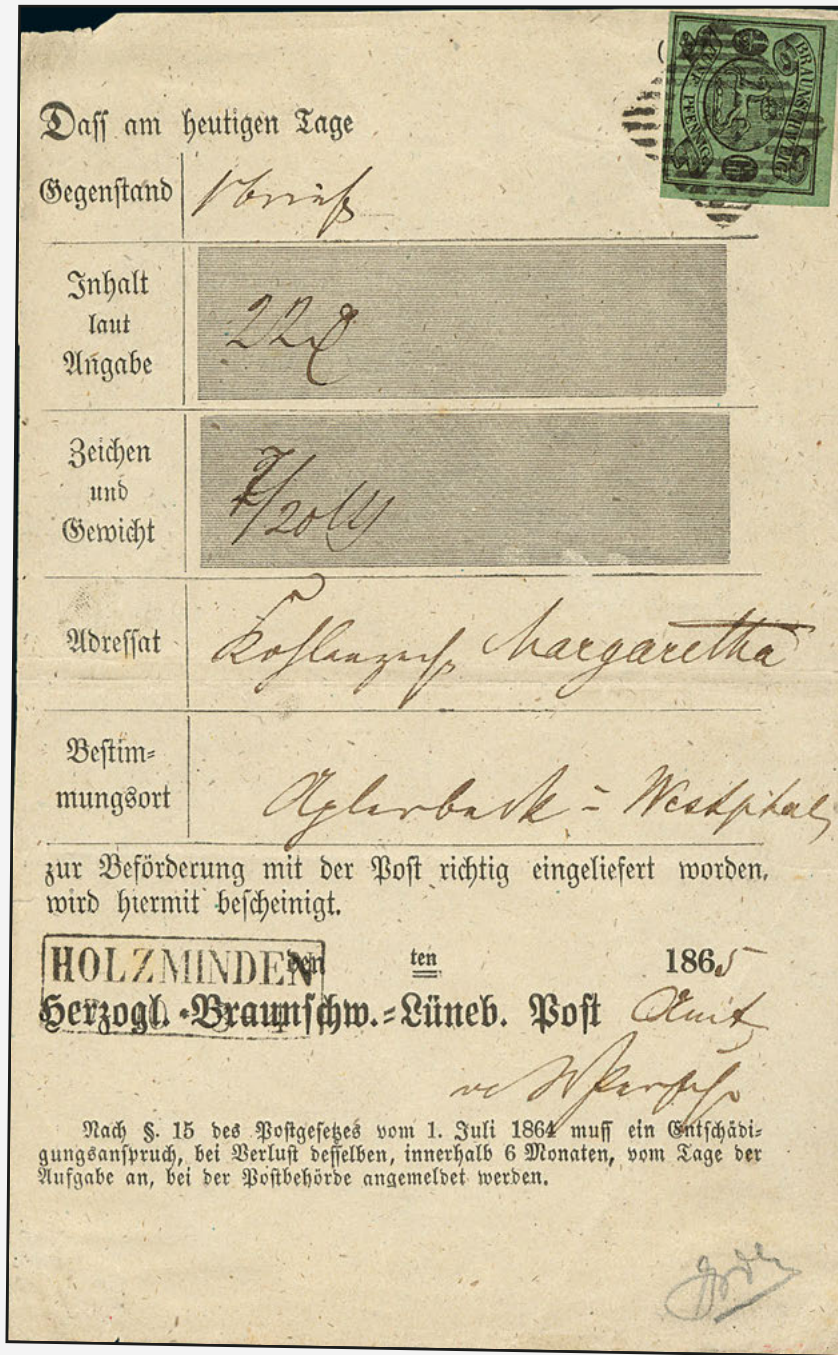 BRAUNSCHWEIG
FÜNF PFENNIG
Daſſ am heutigen Tage
Gegenſtand 1 Brief
Inhalt
laut
Angabe
22
Zeichen
und
Gewicht
7/20
Adreſſat Kohlenzech Margaretha
Beſtim-
mungsort
Aplerbeck - Westphal
zur Beförderung mit der Poſt richtig eingeliefert worden,
wird hiermit beſcheinigt.
HOLZMINDEN den ten 1865
Herzogl.-Braunſchw.-Lüneb. Poſt Amt
Nach §. 15 des Poſtgeſetzes vom 1. Juli 1864 muſſ ein Entſchädi-
gungsanſpruch, bei Verluſt deſſelben, innerhalb 6 Monaten, vom Tage der
Aufgabe an, bei der Poſtbehörde angemeldet werden.